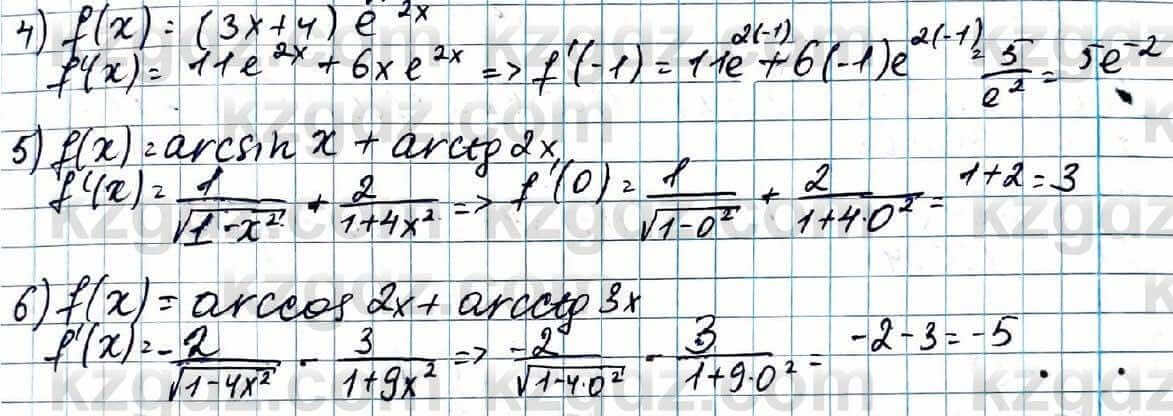 4) f(x) = (3x+4) e^2x
f'(x) = 11e^2x + 6xe^2x => f'(-1) = 11e^2(-1) + 6(-1)e^2(-1) = 5/e^2 = 5e^-2
5) f(x) = arcsin x + arctg 2x
f'(x) = 1/√1-x^2 + 2/1+4x^2 => f'(0) = 1/√1-0^2 + 2/1+4·0^2 = 1+2=3
6) f(x) = arccos 2x + arcctg 3x
f'(x) = -2/√1-4x^2 - 3/1+9x^2 => -2/√1-4·0^2 - 3/1+9·0^2 = -2-3=-5